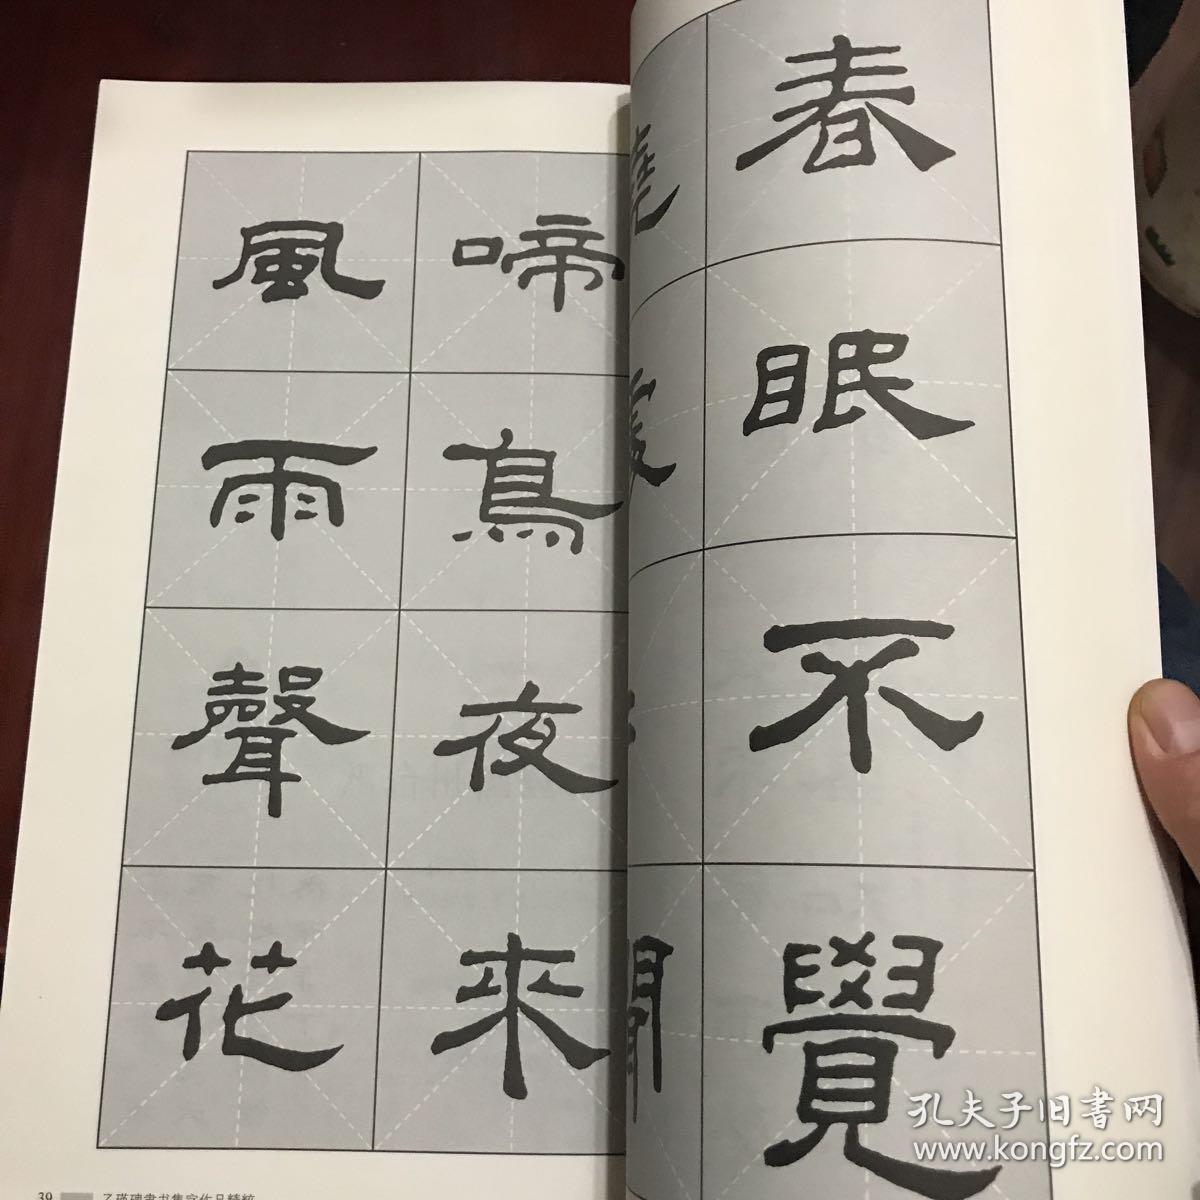 春眠不覺
啼鳥夜來
風雨聲花
39 乙瑛碑隶书集字作品精粹
孔夫子旧书网
www.kongfz.com